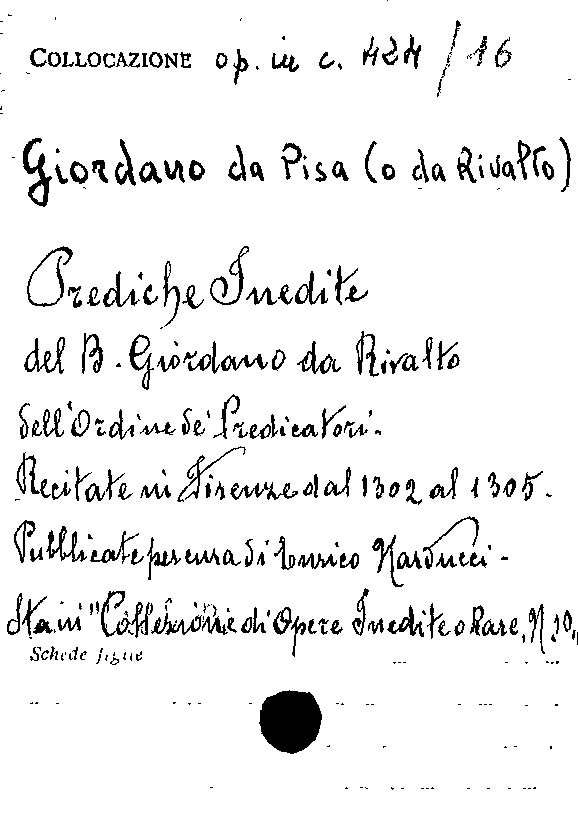 COLLOCAZIONE op. in c. 424 / 16
Giordano da Pisa (o da Rivalto)
Prediche Inedite
del B. Giordano da Rivalto
dell'Ordine de' Predicatori.
Recitate in Firenze dal 1302 al 1305.
Pubblicate per cura di Enrico Narducci -
Sta in "Collezione di Opere Inedite o Rare, N 20"
Schede figlie